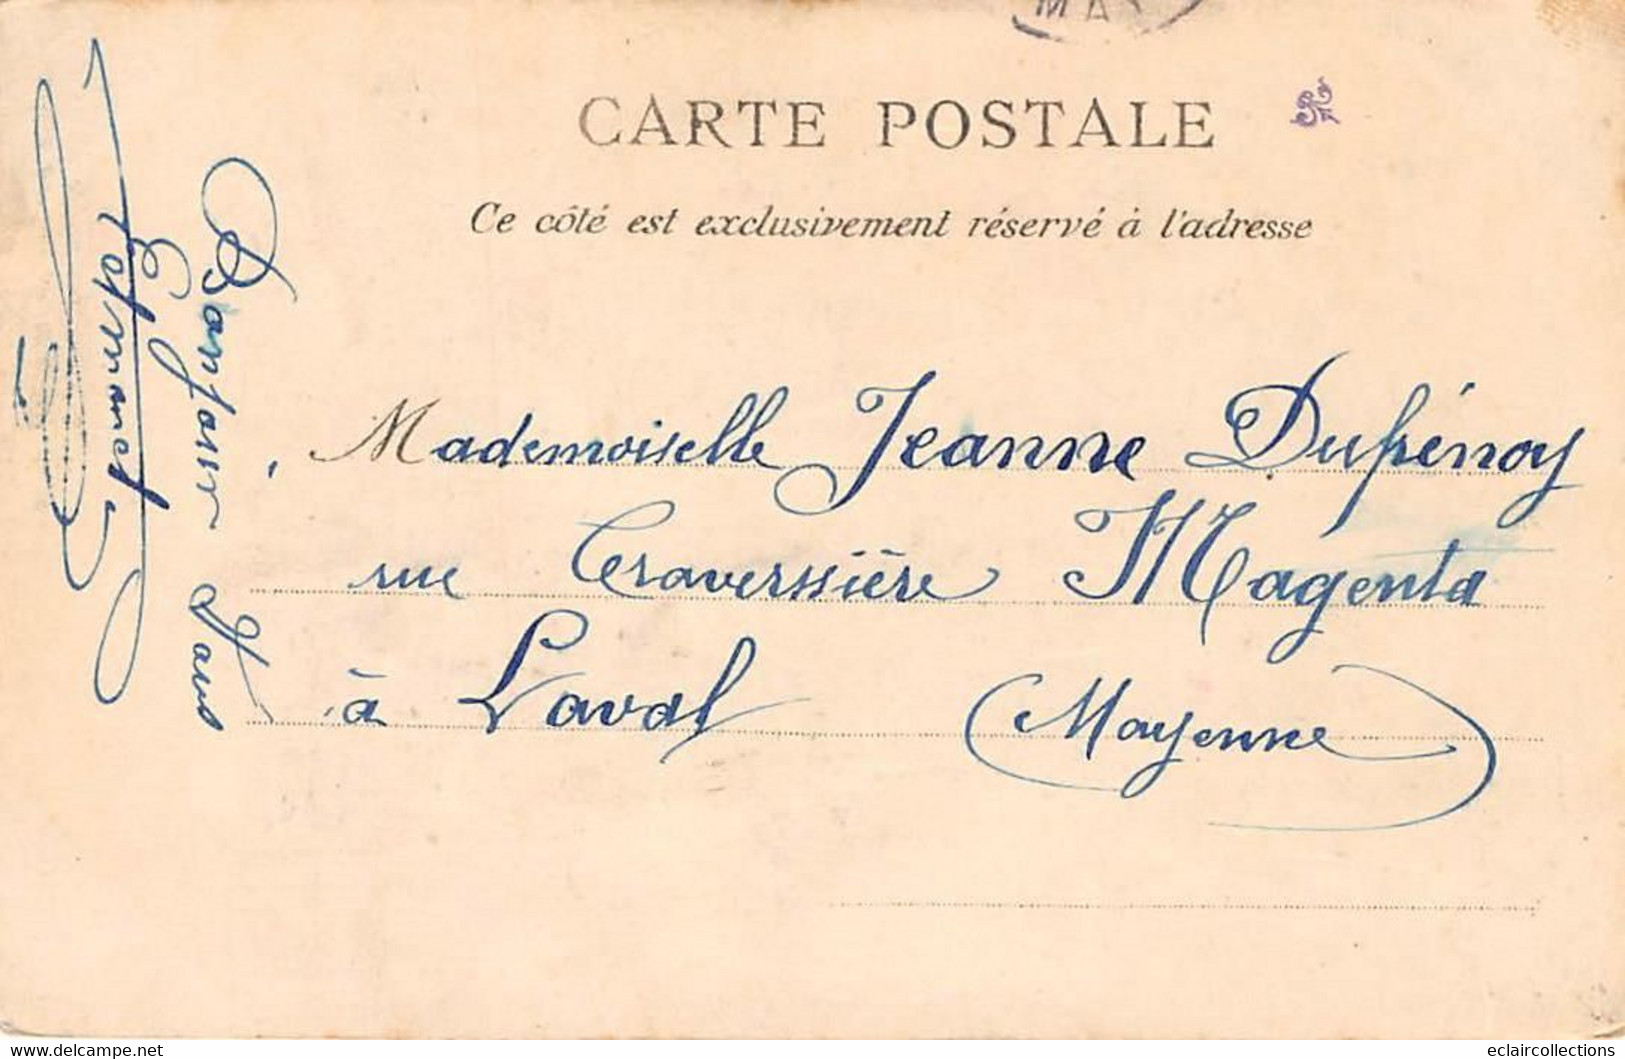 MA
CARTE POSTALE
Ce côté est exclusivement réservé à l'adresse
Mademoiselle Jeanne Dufrénoy
rue Traverssière Magenta
à Laval (Mayenne)
Bonjour
E
delcampe.net
eclaircollections